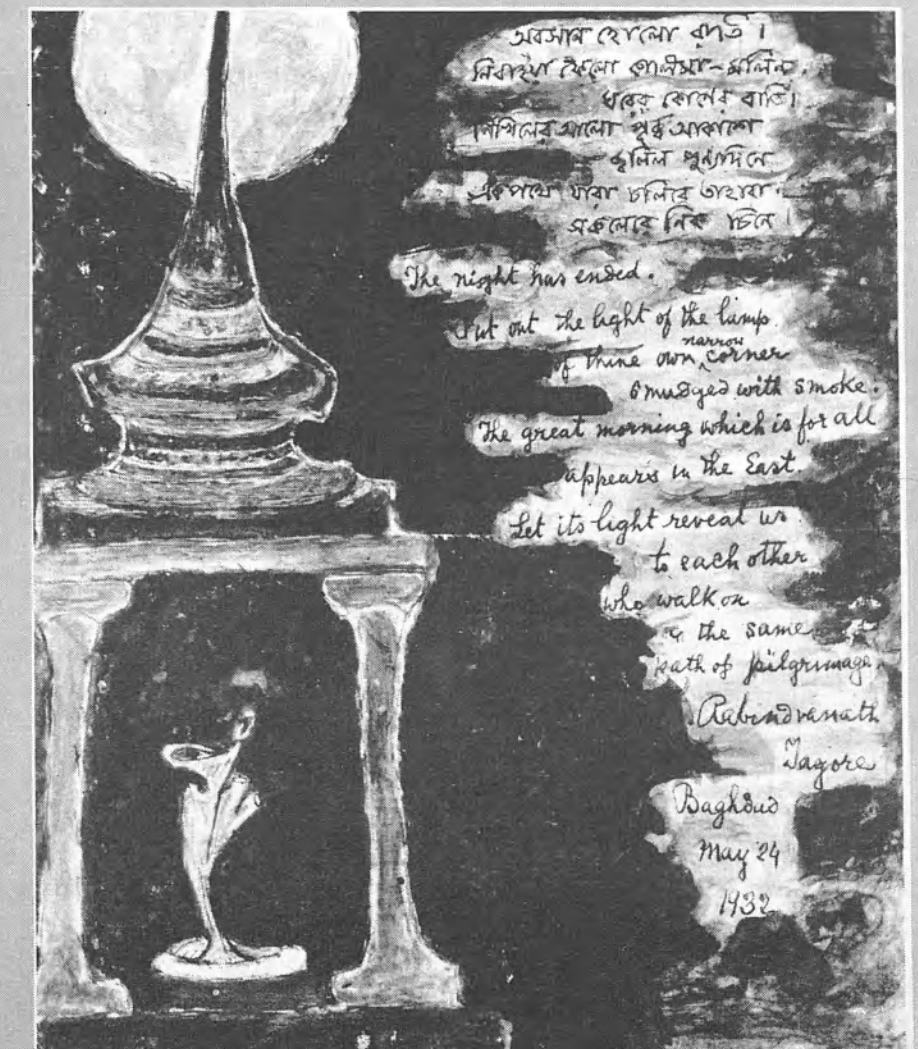 অবসান হোলো রাতি ।
নিবাইয়া ফেলো কালিমা-মলিন
ঘরের কোণের বাতি ।
নিখিলের আলো পূর্ব্ব আকাশে
জ্বলিল পুণ্যদিনে
একপথে যারা চলিবে তাহারা
সকলেরে নিক্ চিনে ।
The night has ended.
Put out the light of the lamp
of thine own narrow corner
smudged with smoke.
The great morning which is for all
appears in the East.
Let its light reveal us
to each other
who walk on
the same
path of pilgrimage.
Rabindranath
Tagore
Baghdad
May 24
1932